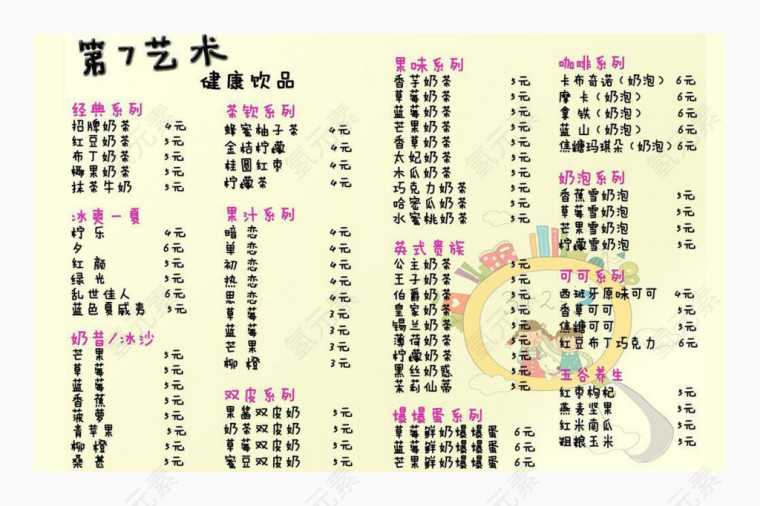 第7艺术
健康饮品
经典系列
招牌奶茶 4元
红豆奶茶 5元
布丁奶茶 5元
椰果奶茶 5元
抹茶牛奶 5元
冰爽一夏
柠乐 4元
夕 6元
红颜 5元
绿光 5元
乱世佳人 6元
蓝色夏威夷 5元
奶昔/冰沙
芒果 5元
草莓 5元
蓝莓 5元
香蕉 5元
菠萝 5元
青苹果 5元
柳橙 5元
桑葚 5元
茶饮系列
蜂蜜柚子茶 4元
金桔柠檬 4元
桂圆红枣 4元
柠檬茶 4元
果汁系列
暗恋 4元
单恋 4元
初恋 4元
热恋 4元
思恋 4元
草莓 3元
蓝莓 3元
芒果 3元
柳橙 3元
双皮系列
果酱双皮奶 5元
奶茶双皮奶 5元
草莓双皮奶 5元
蜜豆双皮奶 5元
果味系列
香芋奶茶 5元
草莓奶茶 5元
蓝莓奶茶 5元
芒果奶茶 5元
香草奶茶 5元
太妃奶茶 5元
木瓜奶茶 5元
巧克力奶茶 5元
哈密瓜奶茶 5元
水蜜桃奶茶 5元
英式贵族
公主奶茶 5元
王子奶茶 5元
伯爵奶茶 5元
皇家奶茶 5元
锡兰奶茶 5元
薄荷奶茶 5元
柠檬奶茶 5元
黑丝奶惑 5元
茉莉仙蒂 5元
爆爆蛋系列
草莓鲜奶爆爆蛋 6元
蓝莓鲜奶爆爆蛋 6元
芒果鲜奶爆爆蛋 6元
咖啡系列
卡布奇诺(奶泡) 6元
摩卡(奶泡) 6元
拿铁(奶泡) 6元
蓝山(奶泡) 6元
焦糖玛琪朵(奶泡) 6元
奶泡系列
香蕉雪奶泡 5元
草莓雪奶泡 5元
芒果雪奶泡 5元
柠檬雪奶泡 5元
可可系列
西班牙原味可可 4元
香草可可 5元
焦糖可可 5元
红豆布丁巧克力 6元
五谷养生
红枣枸杞 5元
燕麦坚果 5元
红米南瓜 5元
粗粮玉米 5元
氢元素